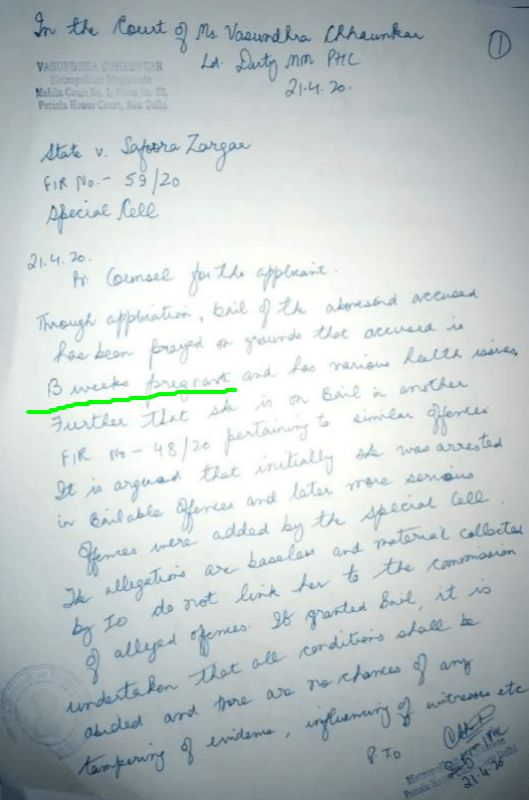 In the Court of Ms Vasundhra Chhaunkar
①
Ld. Duty MM PHC
21.4.20.
VASUNDHRA CHHAUNKAR
Metropolitan Magistrate
Mahila Court No. 1, Room No. 30,
Patiala House Court, New Delhi
State v. Safoora Zargar
FIR No.- 59/20
Special Cell
21.4.20.
Pr: Counsel for the applicant.
Through application, bail of the aforesaid accused
has been prayed on grounds that accused is
13 weeks pregnant and has various health issues,
Further that she is on Bail in another
FIR no - 48/20 pertaining to similar offences.
It is argued that initially she was arrested
in Bailable offences and later more serious
offences were added by the Special Cell.
The allegations are baseless and material collected
by IO do not link her to the commission
of alleged offences. If granted Bail, it is
undertaken that all conditions shall be
abided and there are no chances of any
tampering of evidence, influencing of witnesses etc
P.TO
Metropolitan Magistrate
21.4.20